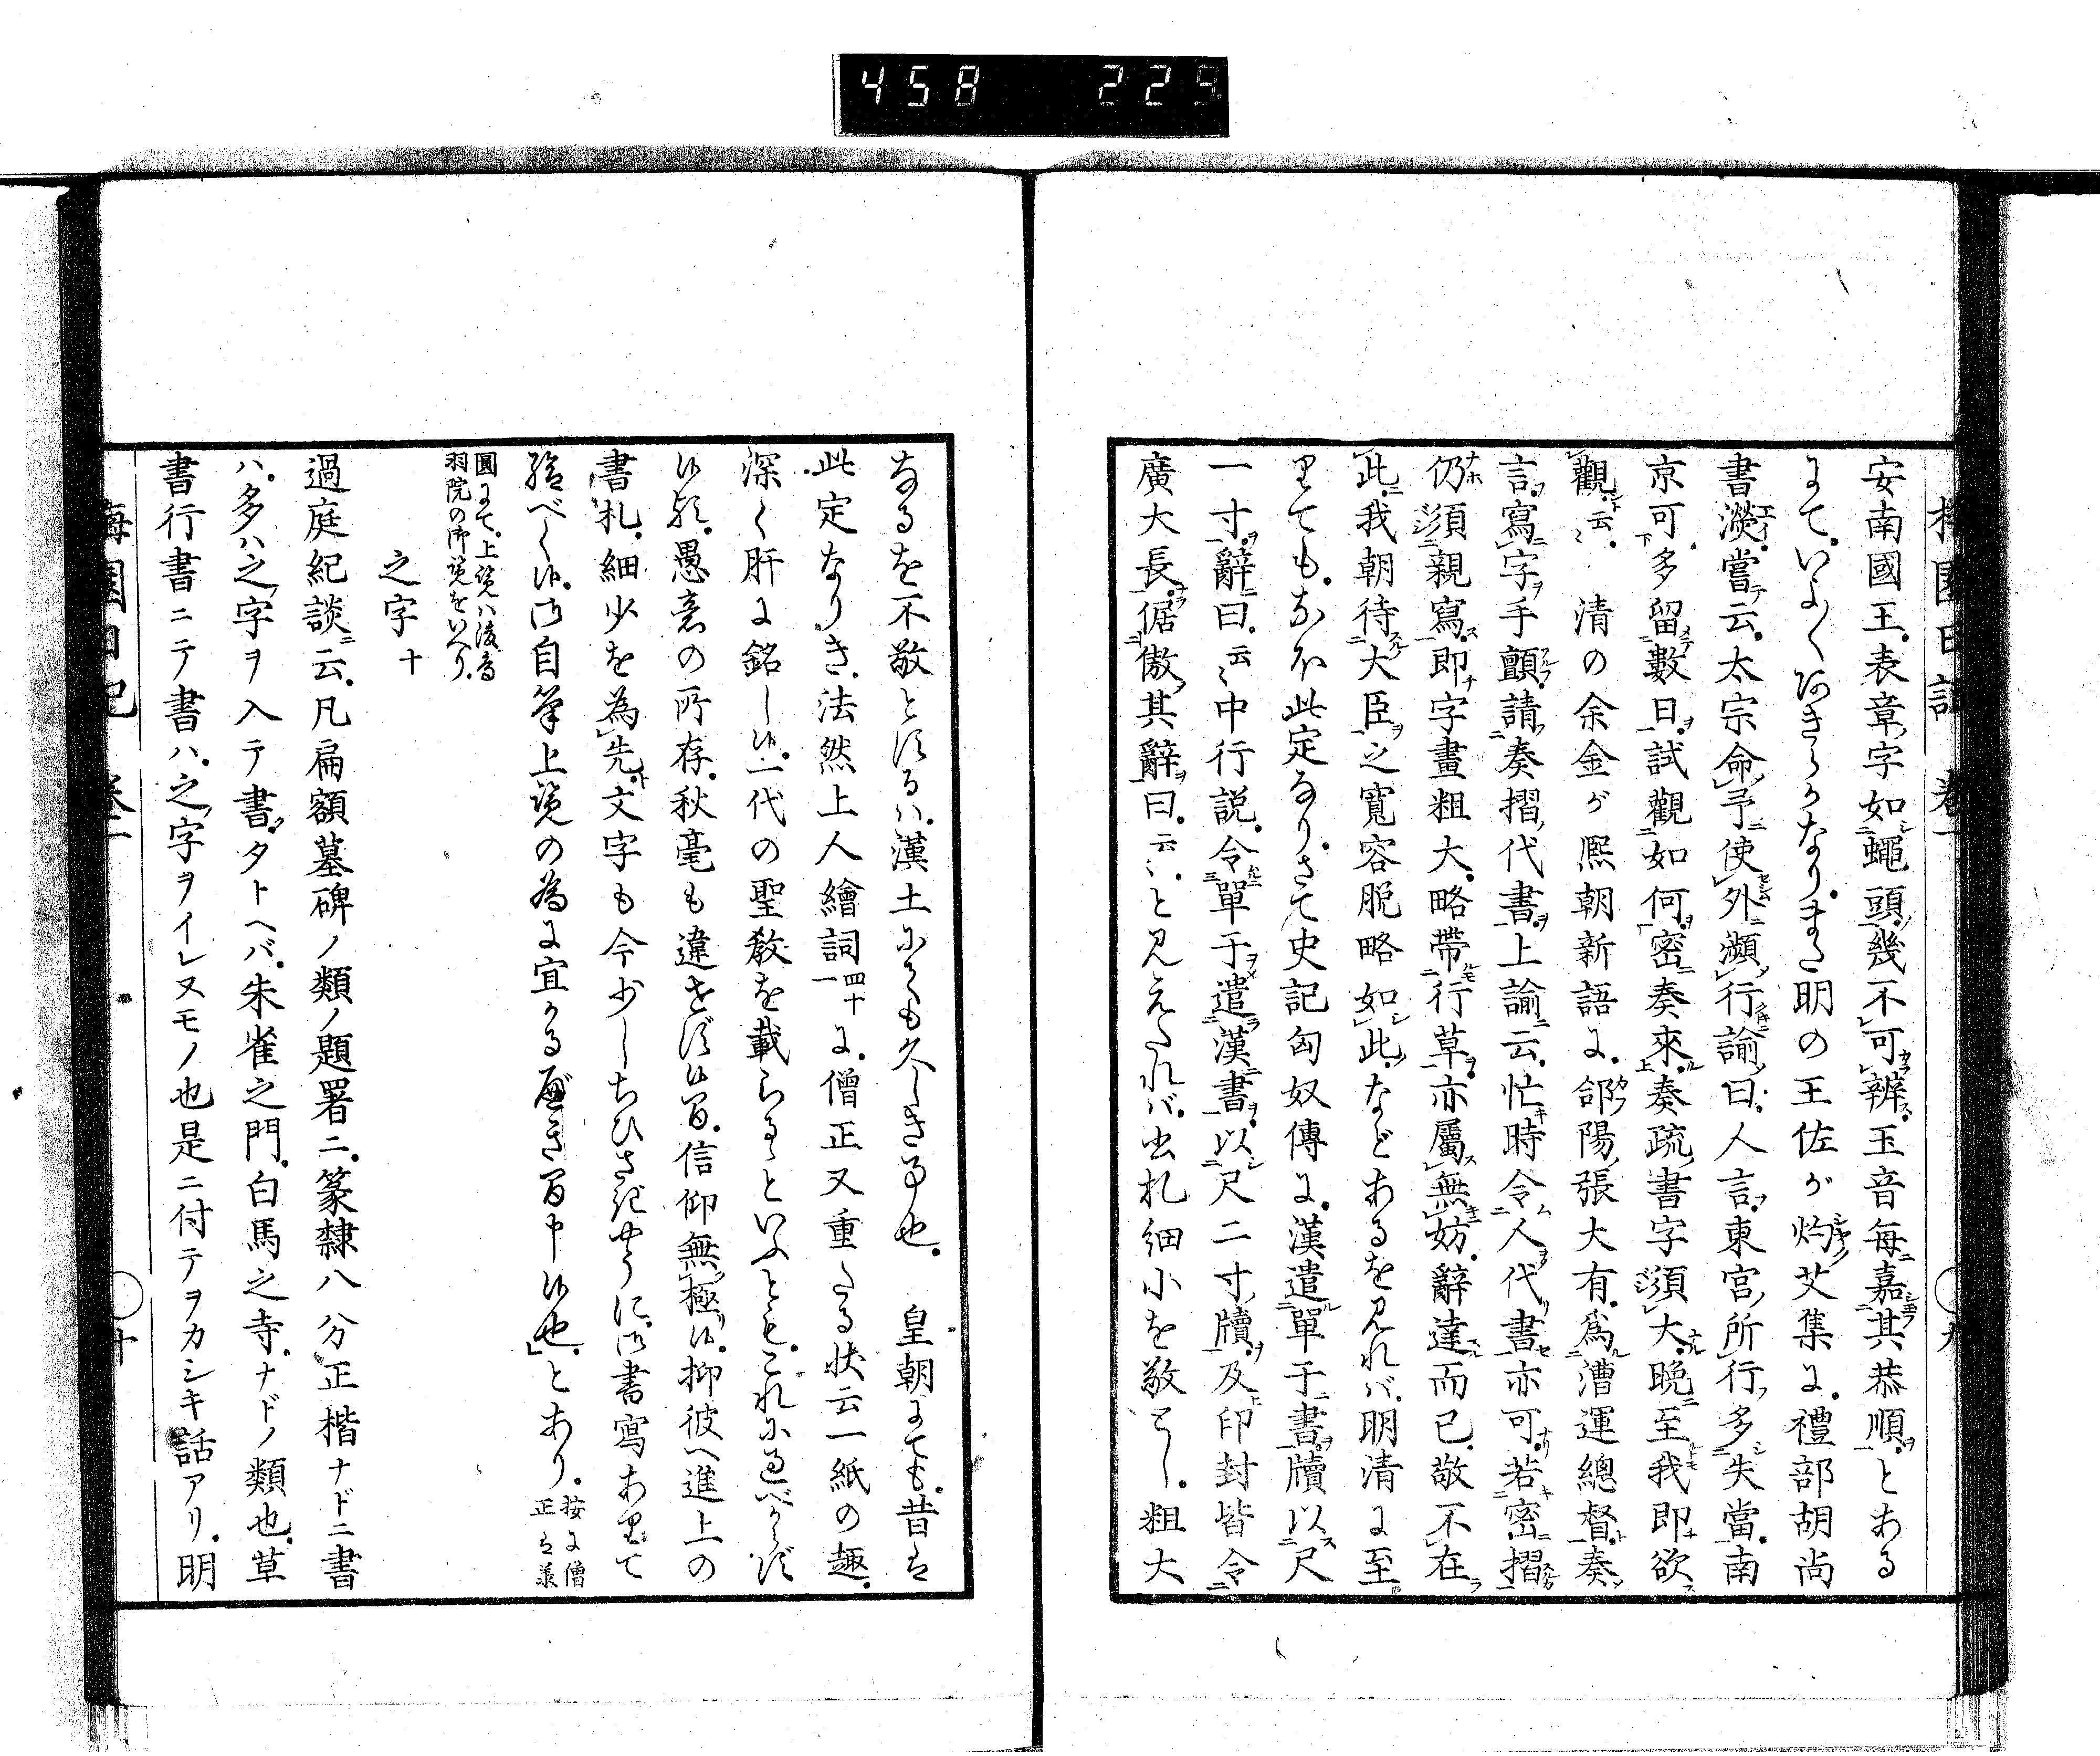 458 229
梅園日記 卷一 九
安南國王表章字如蠅頭幾不可辨玉音每嘉其恭順とある
にていよ〳〵あきらかなりまた明の王佐が灼艾集に禮部胡尚
書濙嘗云太宗命予使外瀕行諭曰人言東宮所行多失當南
京可多留數日試觀如何密奏來奏疏書字須大晚至我即欲
觀云〻清の余金が熙朝新語に郃陽張大有爲漕運總督奏
言寫字手顫請奏摺代書上諭云忙時令人代書亦可若密摺
仍須親寫即字畫粗大略帶行草亦屬無妨辭達而已敬不在
此我朝待大臣之寬容脫略如此などあるを見れバ明清に至
りてもなほ此定なりさて史記匈奴傳に漢遺單于書牘以尺
一寸辭曰云〻中行説令單于遺漢書以尺二寸牘及印封皆令
廣大長倨傲其辭曰云〻と見えたれバ書札細小を敬とし粗大
なるを不敬とするハ漢土にても久しき事也 皇朝にても昔は
此定なりき法然上人繪詞四十一に僧正又重たる狀云一紙の趣
深く肝に銘し候一代の聖教を載らるといふともこれに過べからず
候歟愚意の所存秋毫も違せず候間信仰無極候抑彼へ進上の
書札細少を為先文字も今少しちひさきやうに御書寫ありて
給べく候御自筆上覽の為に宜かるべき間申候也とあり 按に僧正は兼
圓にて上覽ハ後鳥羽院の御覽をいへり
之字 十
過庭紀談云凡扁額墓碑ノ類ノ題署ニ篆隸八分正楷ナドニ書
ハ多ハ之字ヲ入テ書タトヘバ朱雀之門白馬之寺ナドノ類也草
書行書ニテ書ハ之字ヲイレヌモノ也是ニ付テヲカシキ話アリ明
梅園日記 卷一 十